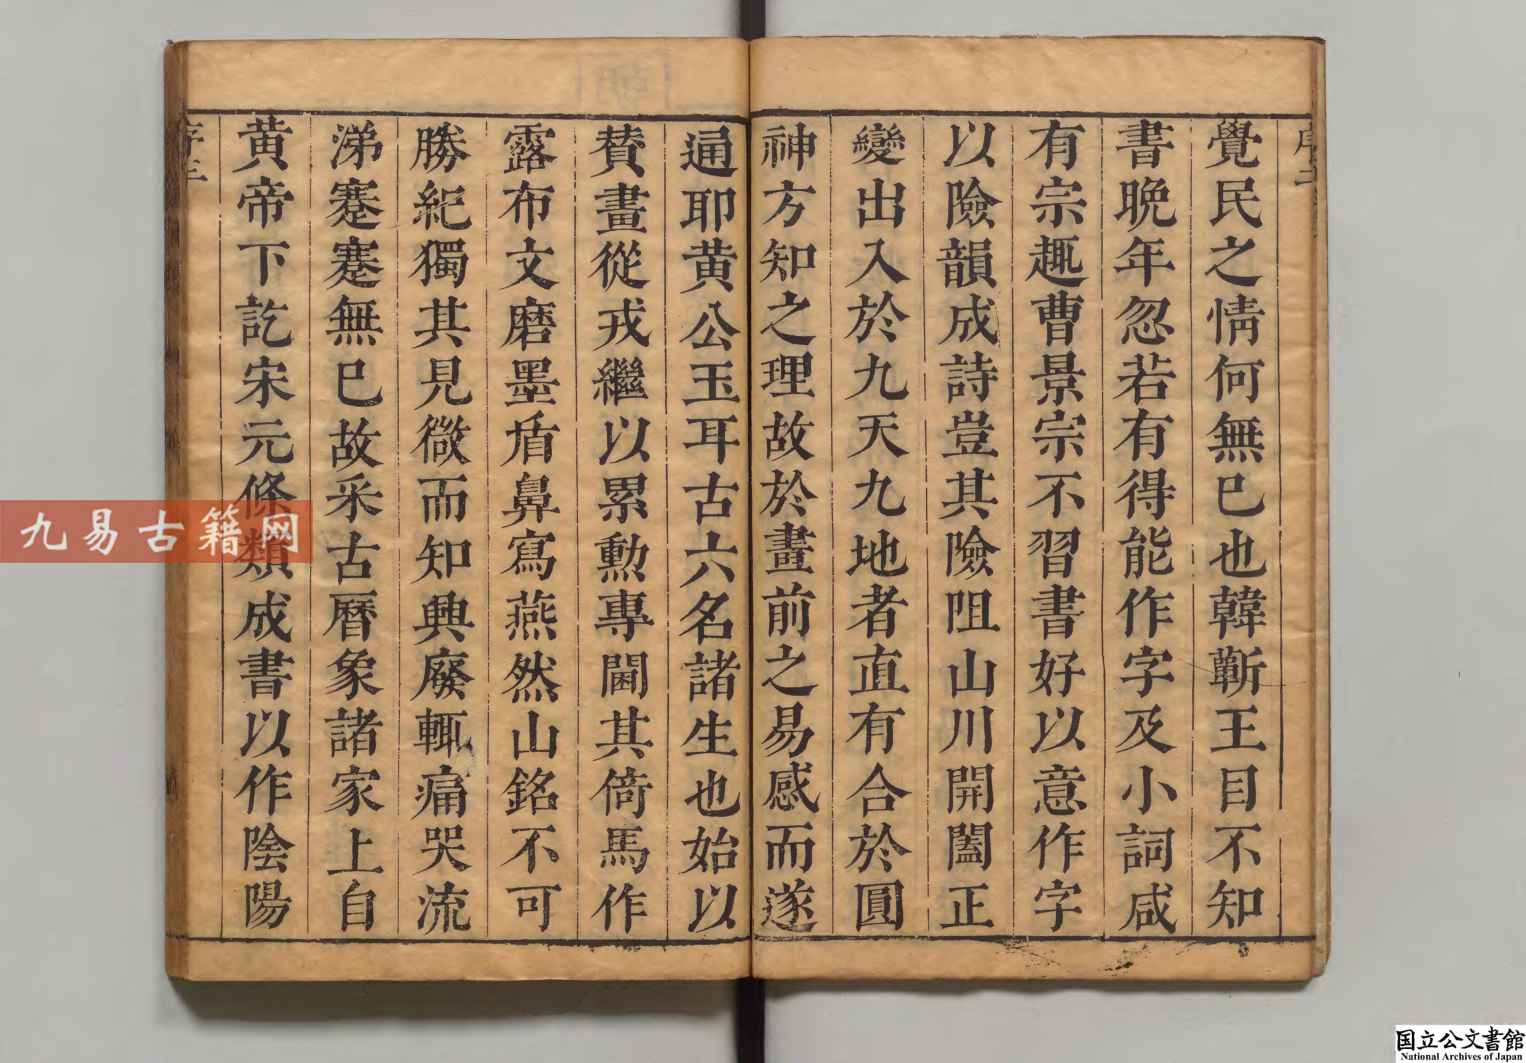 覺民之情何無已也韓蘄王目不知
書晚年忽若有得能作字及小詞咸
有宗趣曹景宗不習書好以意作字
以險韻成詩豈其險阻山川開闔正
變出入於九天九地者直有合於圓
神方知之理故於畫前之易感而遂
通耶黄公玉耳古六名諸生也始以
賛畫從戎繼以累勲專閫其倚馬作
露布文磨墨盾鼻寫燕然山銘不可
勝紀獨其見微而知興廢輒痛哭流
涕蹇蹇無已故采古曆象諸家上自
黄帝下訖宋元條類成書以作陰陽
序三
九易古籍网
国立公文書館
National Archives of Japan